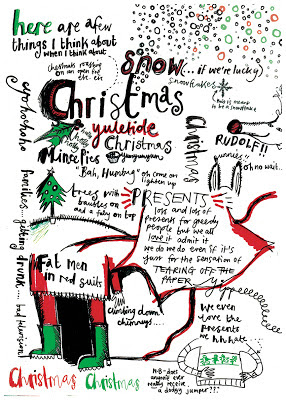 here are a few
things I think about
when I think about
chestnuts roasting
on an open fire
etc. etc
SNOW...if we're lucky
snowflakes
this is meant
to be a snowflake
Christmas
yohohoho
yuletide
Christmas
Christmas
RUDOLF!!
Mince Pies
yumyumyum
"Bah, Humbug"
oh come on
lighten up
oh no wait..
trees with
baubles on
and a fairy on top
families....getting
drunk....
PRESENTS
lots and lots of
presents for greedy
people but we all
love it admit it
we do we do even if it's
just for the sensation of
TEARING OFF THE
PAPER
Fat Men
in red suits
climbing down
chimneys....
We even
love the
presents
we hhhate
N.B-does
anyone ever
really receive
a dodgy jumper???
Christmas Christmas